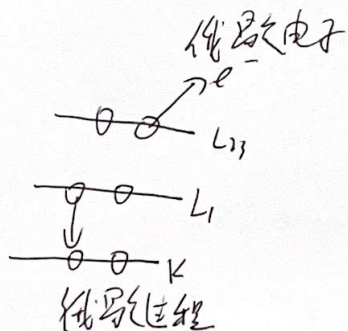 俄歇电子
e
L₂₃
L₁
K
俄歇过程